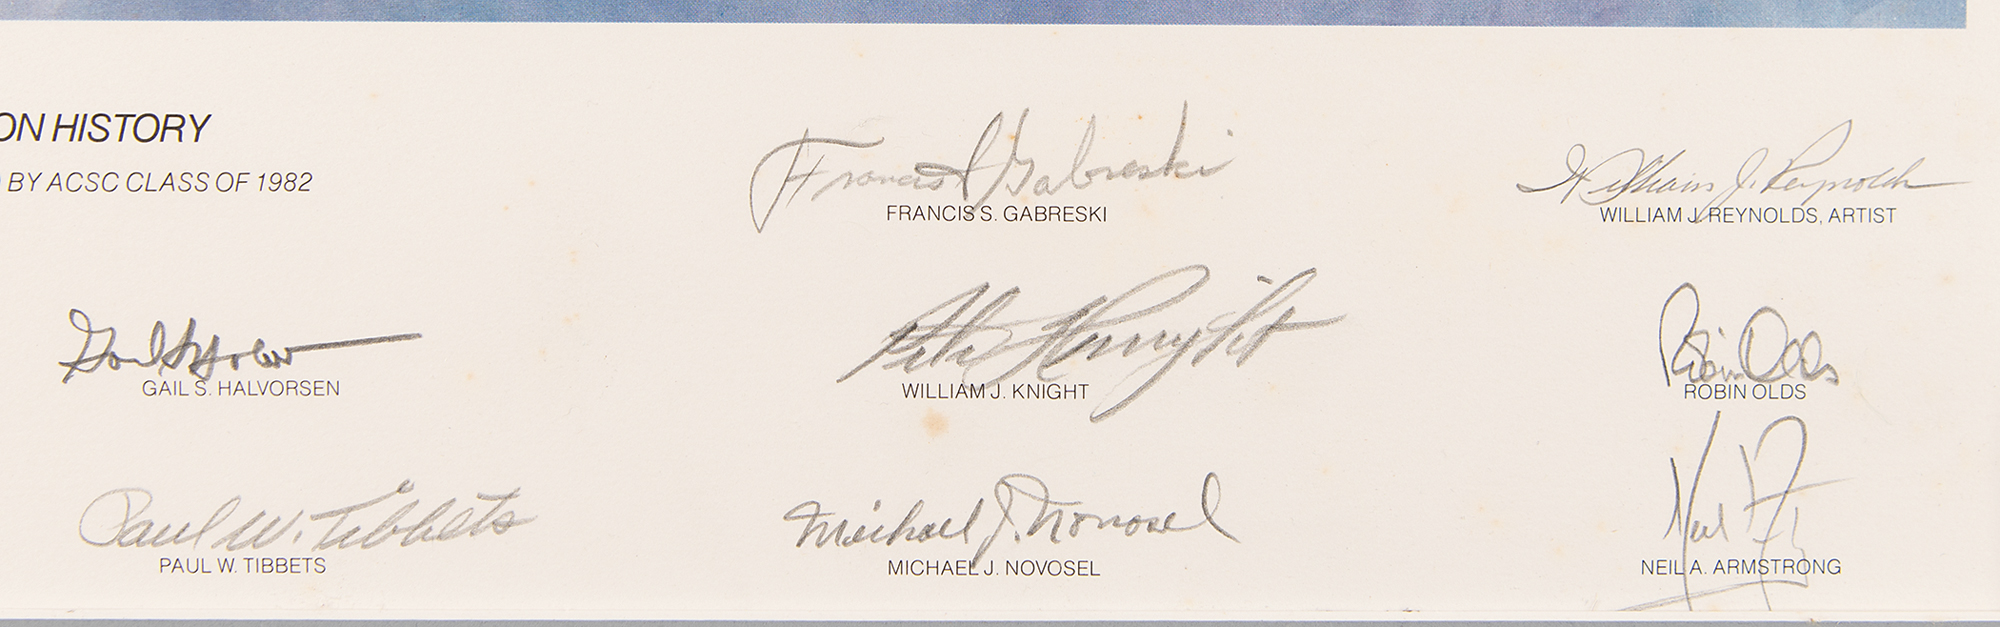 ON HISTORY
BY ACSC CLASS OF 1982
Francis S Gabreski
FRANCIS S. GABRESKI
William J. Reynolds
WILLIAM J. REYNOLDS, ARTIST
Gail S Halvorsen
GAIL S. HALVORSEN
Pete Knight
WILLIAM J. KNIGHT
Robin Olds
ROBIN OLDS
Paul W. Tibbets
PAUL W. TIBBETS
Michael J. Novosel
MICHAEL J. NOVOSEL
Neil
NEIL A. ARMSTRONG